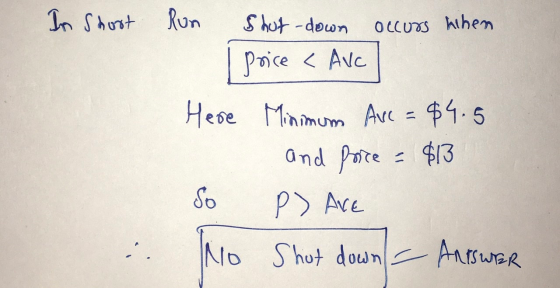 In Short Run Shut-down occurs when
Price < AVC
Here Minimum AVC = $4.5
and Price = $13
So P > AVC
∴ No Shut down = ANSWER